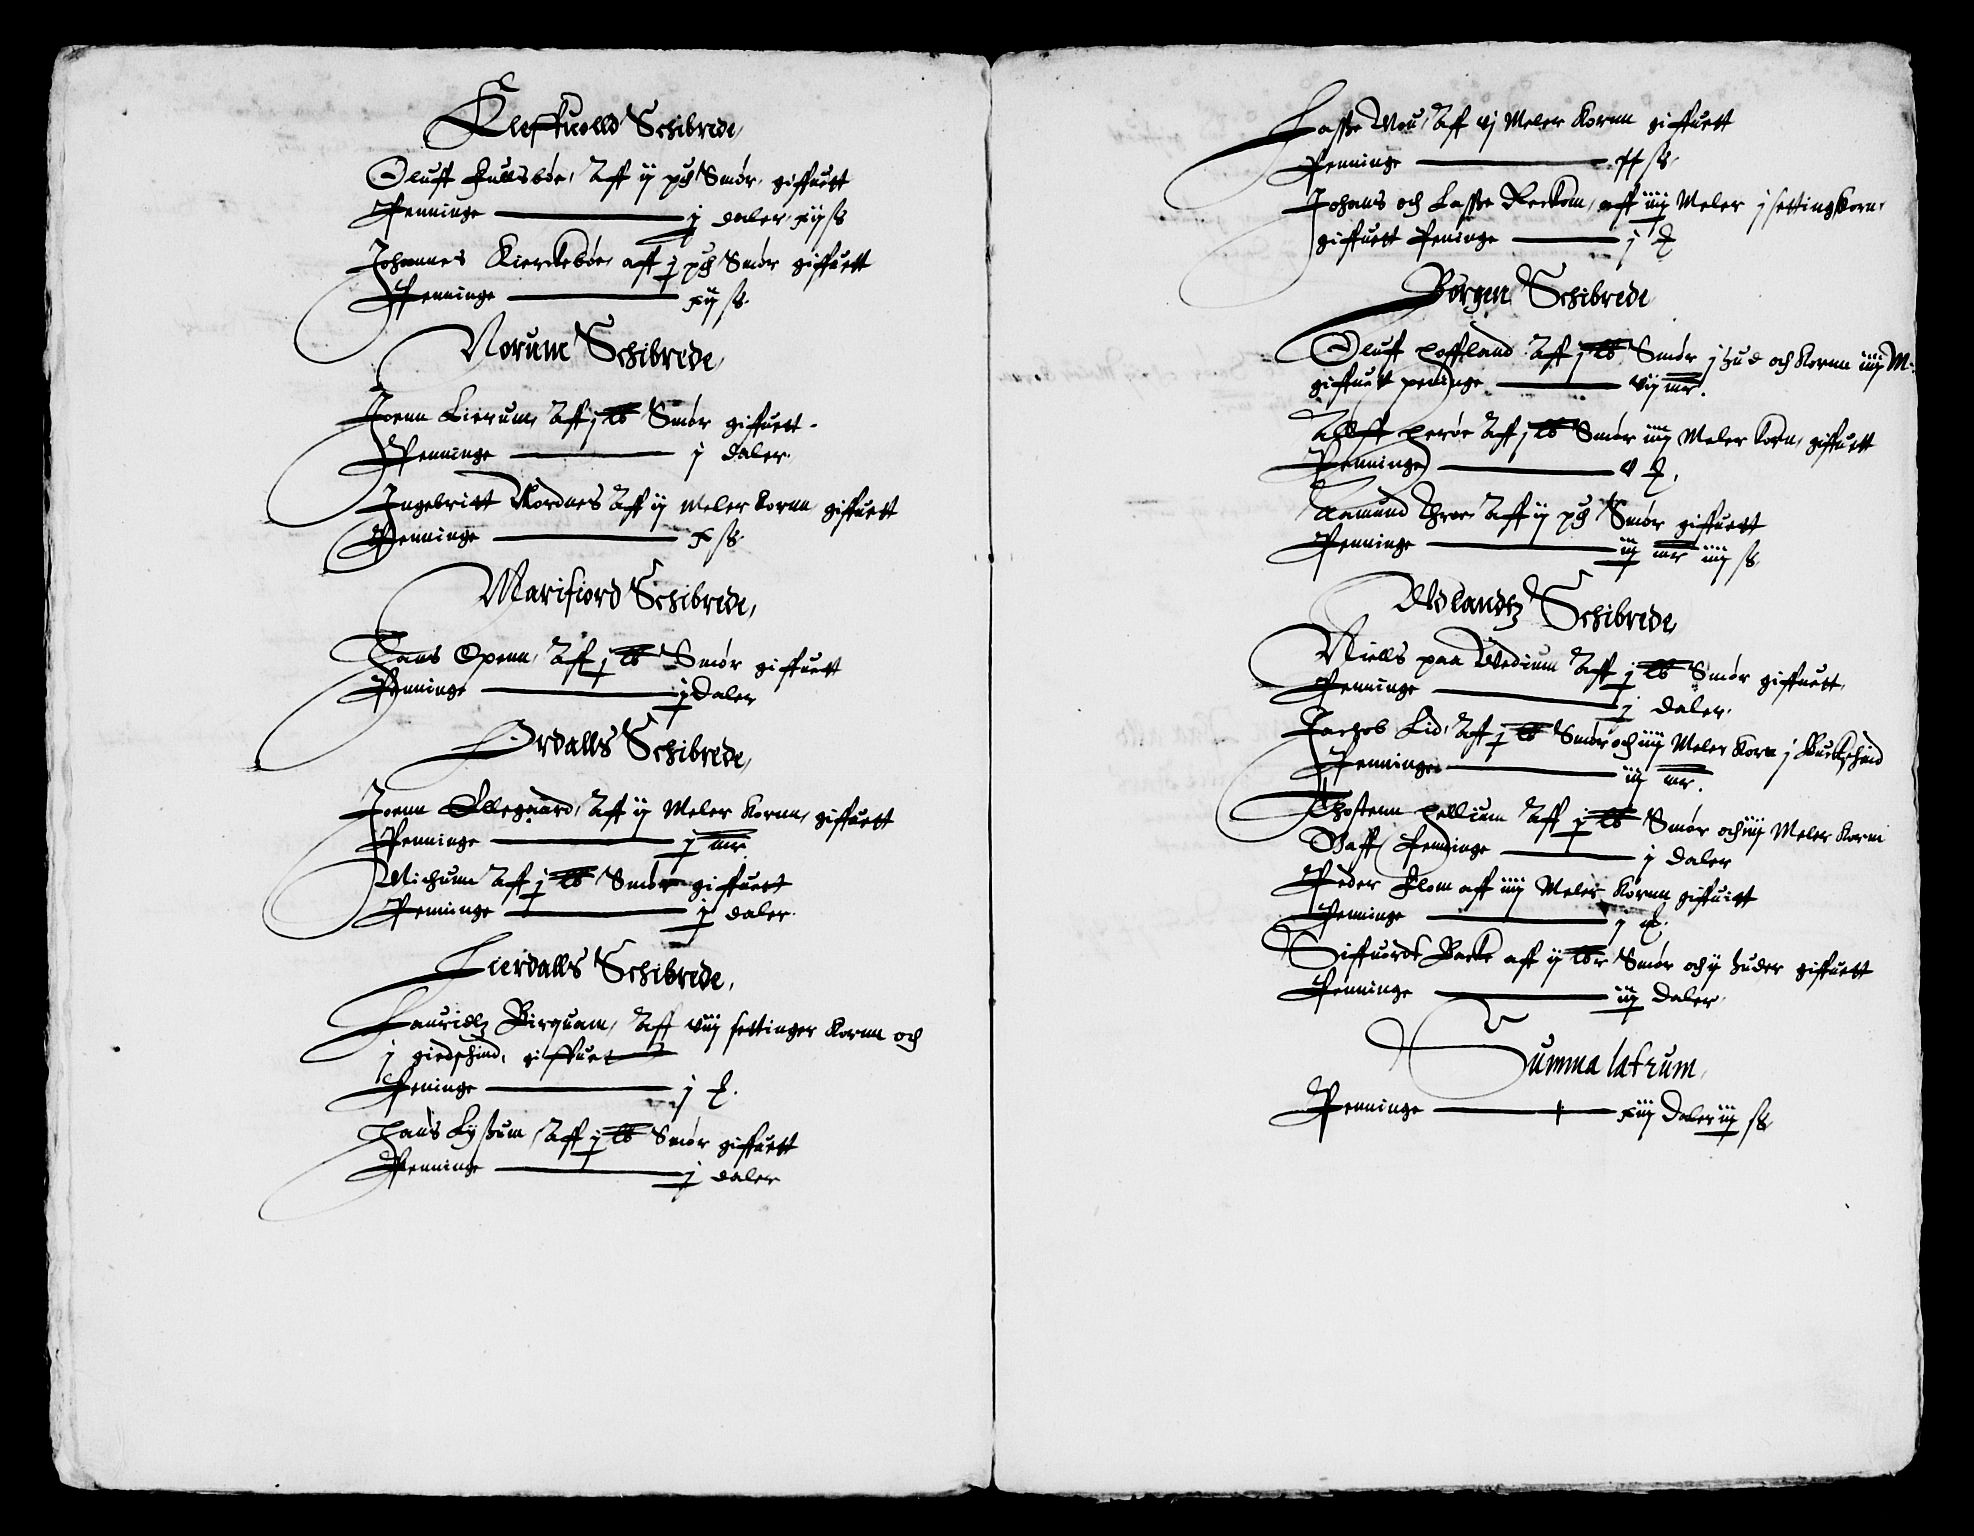 Sleffuolld Schibrede,
Oluff Fullsbøe, Aff ij pd Smør, giffuett
Penninge j daler, xij ß
Johannes Kierckebøe, aff j pd Smør giffuett
Penninge xij ß.
Norum Schibrede,
Joenn Lierum, Aff j lb Smør giffuett.
Penninge j daler,
Ingebritt Nordnes Aff ij Meler Kornn giffuett
Penninge x ß.
Marifiord Schibrede,
Hans Openn, Aff j lb Smør giffuett
Penninge j Daler
Ordalls Schibrede,
Joenn Ellegaard, Aff ij Meler Kornn, giffuett
Penninge j mr
Michum Aff j lb Smør giffuett
Penninge j daler.
Lierdalls Schibrede,
Lauridtz Birquam, Aff viij settinger Kornn och
j giedschind, giffuet
Peninge j
Hans Aff j lb Smør giffuett
Penninge j daler
Lasse Mou, Aff vj Meler Kornn giffuett
Penninge xx ß.
Johans och Lasse aff iiij Meler j setting korn,
giffuett Peninge j
Borgen Schibrede
Oluff Hoffland Aff j lb Smør j hud och Kornn iiij M.
giffuett peninge vij mr.
Aff j lb Smør iiij Meler Korn, giffuett
Penninge v
Aamund Aff ij pd Smør giffuett
Penninge iij mr iiij ß,
Wdlandtz Schibrede,
Niells paa Wedium Aff j lb Smør giffuett,
Penninge j daler.
Jachob Lid, Aff j lb Smør och iiij Meler Korn j Buckschind
Penninge iij mr.
Thostenn Hellium Aff j lb Smør och iiij Meler Korn
Gaff Penninge j daler
Peder Flom aff iiij Meler Kornn giffuitt
Penninge j
Siffuordt Backe aff ij lbr Smør och ij huder giffuett
Penninge iij daler,
Summa latrum,
Penninge xiij Daler iij ß